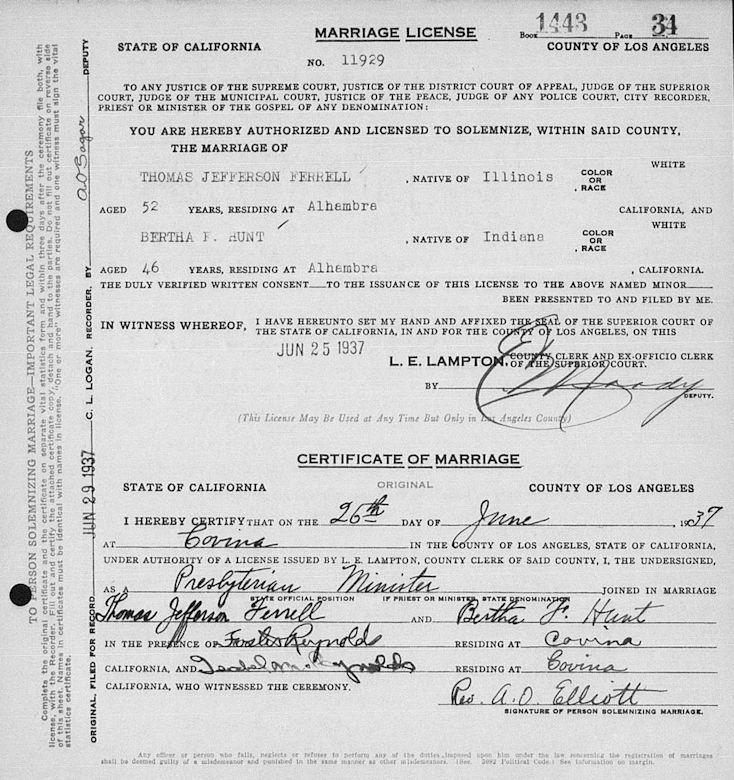 MARRIAGE LICENSE
BOOK 1443 PAGE 34
STATE OF CALIFORNIA COUNTY OF LOS ANGELES
NO. 11929
TO ANY JUSTICE OF THE SUPREME COURT, JUSTICE OF THE DISTRICT COURT OF APPEAL, JUDGE OF THE SUPERIOR
COURT, JUDGE OF THE MUNICIPAL COURT, JUSTICE OF THE PEACE, JUDGE OF ANY POLICE COURT, CITY RECORDER,
PRIEST OR MINISTER OF THE GOSPEL OF ANY DENOMINATION:
YOU ARE HEREBY AUTHORIZED AND LICENSED TO SOLEMNIZE, WITHIN SAID COUNTY,
THE MARRIAGE OF
THOMAS JEFFERSON FERRELL, NATIVE OF Illinois, COLOR OR RACE WHITE
AGED 52 YEARS, RESIDING AT Alhambra CALIFORNIA, AND
BERTHA F. HUNT, NATIVE OF Indiana, COLOR OR RACE WHITE
AGED 46 YEARS, RESIDING AT Alhambra, CALIFORNIA.
THE DULY VERIFIED WRITTEN CONSENT TO THE ISSUANCE OF THIS LICENSE TO THE ABOVE NAMED MINOR
BEEN PRESENTED TO AND FILED BY ME.
IN WITNESS WHEREOF, I HAVE HEREUNTO SET MY HAND AND AFFIXED THE SEAL OF THE SUPERIOR COURT OF
THE STATE OF CALIFORNIA, IN AND FOR THE COUNTY OF LOS ANGELES, ON THIS
JUN 25 1937
L. E. LAMPTON, COUNTY CLERK AND EX-OFFICIO CLERK
OF THE SUPERIOR COURT.
BY Moody
DEPUTY.
(This License May Be Used at Any Time But Only in Los Angeles County)
CERTIFICATE OF MARRIAGE
STATE OF CALIFORNIA ORIGINAL COUNTY OF LOS ANGELES
I HEREBY CERTIFY THAT ON THE 26th DAY OF June, 1937
AT Covina IN THE COUNTY OF LOS ANGELES, STATE OF CALIFORNIA,
UNDER AUTHORITY OF A LICENSE ISSUED BY L. E. LAMPTON, COUNTY CLERK OF SAID COUNTY, I, THE UNDERSIGNED,
AS A Presbyterian Minister JOINED IN MARRIAGE
STATE OFFICIAL POSITION IF PRIEST OR MINISTER, STATE DENOMINATION
Thomas Jefferson Ferrell AND Bertha F. Hunt
IN THE PRESENCE OF Foster Reynolds RESIDING AT Covina
CALIFORNIA, AND Isabel M. Reynolds RESIDING AT Covina
CALIFORNIA, WHO WITNESSED THE CEREMONY.
Rev. A. O. Elliott
SIGNATURE OF PERSON SOLEMNIZING MARRIAGE.
Any officer or person who fails, neglects or refuses to perform any of the duties imposed upon him under the law concerning the registration of marriages
shall be deemed guilty of a misdemeanor and punished in the same manner as other misdemeanors. (Sec. 3082 Political Code.) See information on margin.
ORIGINAL, FILED FOR RECORD JUN 29 1937 C. L. LOGAN, RECORDER, BY DEPUTY
TO PERSON SOLEMNIZING MARRIAGE—IMPORTANT LEGAL REQUIREMENTS
Complete the original certificate and the certificate on separate vital statistics form and within three days after the ceremony file both, with
license, with the Recorder. Fill out and certify the attached certificate copy, detach and hand to the parties. Do not fill out certificate on reverse side
of this sheet. Names in certificates must be identical with names in license. "One or more" witnesses are required and one witness must sign the vital
statistics certificate.